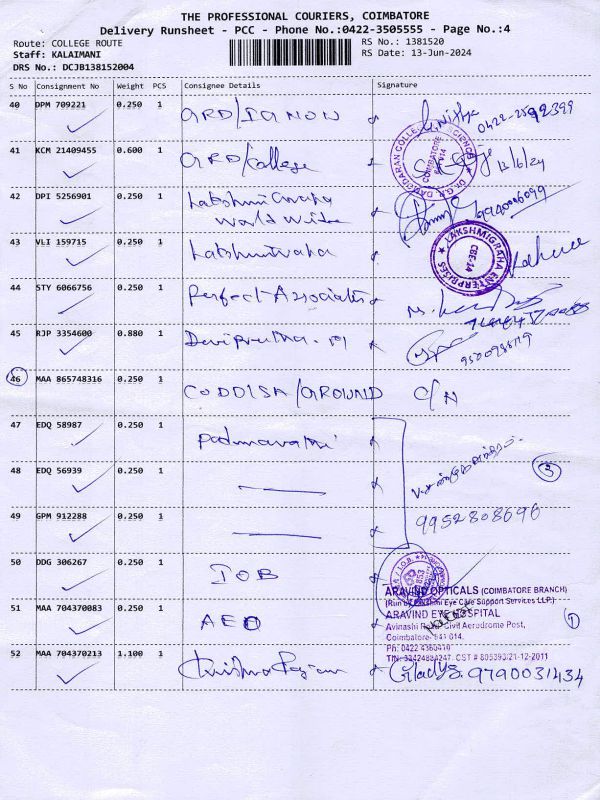 THE PROFESSIONAL COURIERS, COIMBATORE
Delivery Runsheet - PCC - Phone No.:0422-3505555 - Page No.:4
Route: COLLEGE ROUTE
Staff: KALAIMANI
DRS No.: DCJB138152004
RS No.: 1381520
RS Date: 13-Jun-2024
S No Consignment No Weight PCS Consignee Details Signature
40 DPM 709221 0.250 1 GRD/IGNOU 0422-2592399
41 KCM 21409455 0.600 1 GRD/College 13/6/24
Dr. G.R. DAMODARAN COLLEGE SCIENCE COIMBATORE
42 DPI 5256901 0.250 1 Lakshmi Graha
World Wide 9940006099
43 VLI 159715 0.250 1 Lakshmi
LAKSHMIGRAHA ENTERPRISES CBE-14
44 STY 6066756 0.250 1 Perfect Associates
45 RJP 3354600 0.880 1
46 MAA 865748316 0.250 1 CODDISA/GROUND C/N
47 EDQ 58987 0.250 1 Padmavathi
48 EDQ 56939 0.250 1
3
49 GPM 912288 0.250 1
9952808696
50 DDG 306267 0.250 1 IOB
51 MAA 704370083 0.250 1 AEO
ARAVIND OPTICALS (COIMBATORE BRANCH)
(Run by Eye Care Support Services LLP.)
ARAVIND EYE HOSPITAL
Avinashi Road Civil Aerodrome Post,
Coimbatore- 641 014.
1
52 MAA 704370213 1.100 1 Gladys. 9790031434